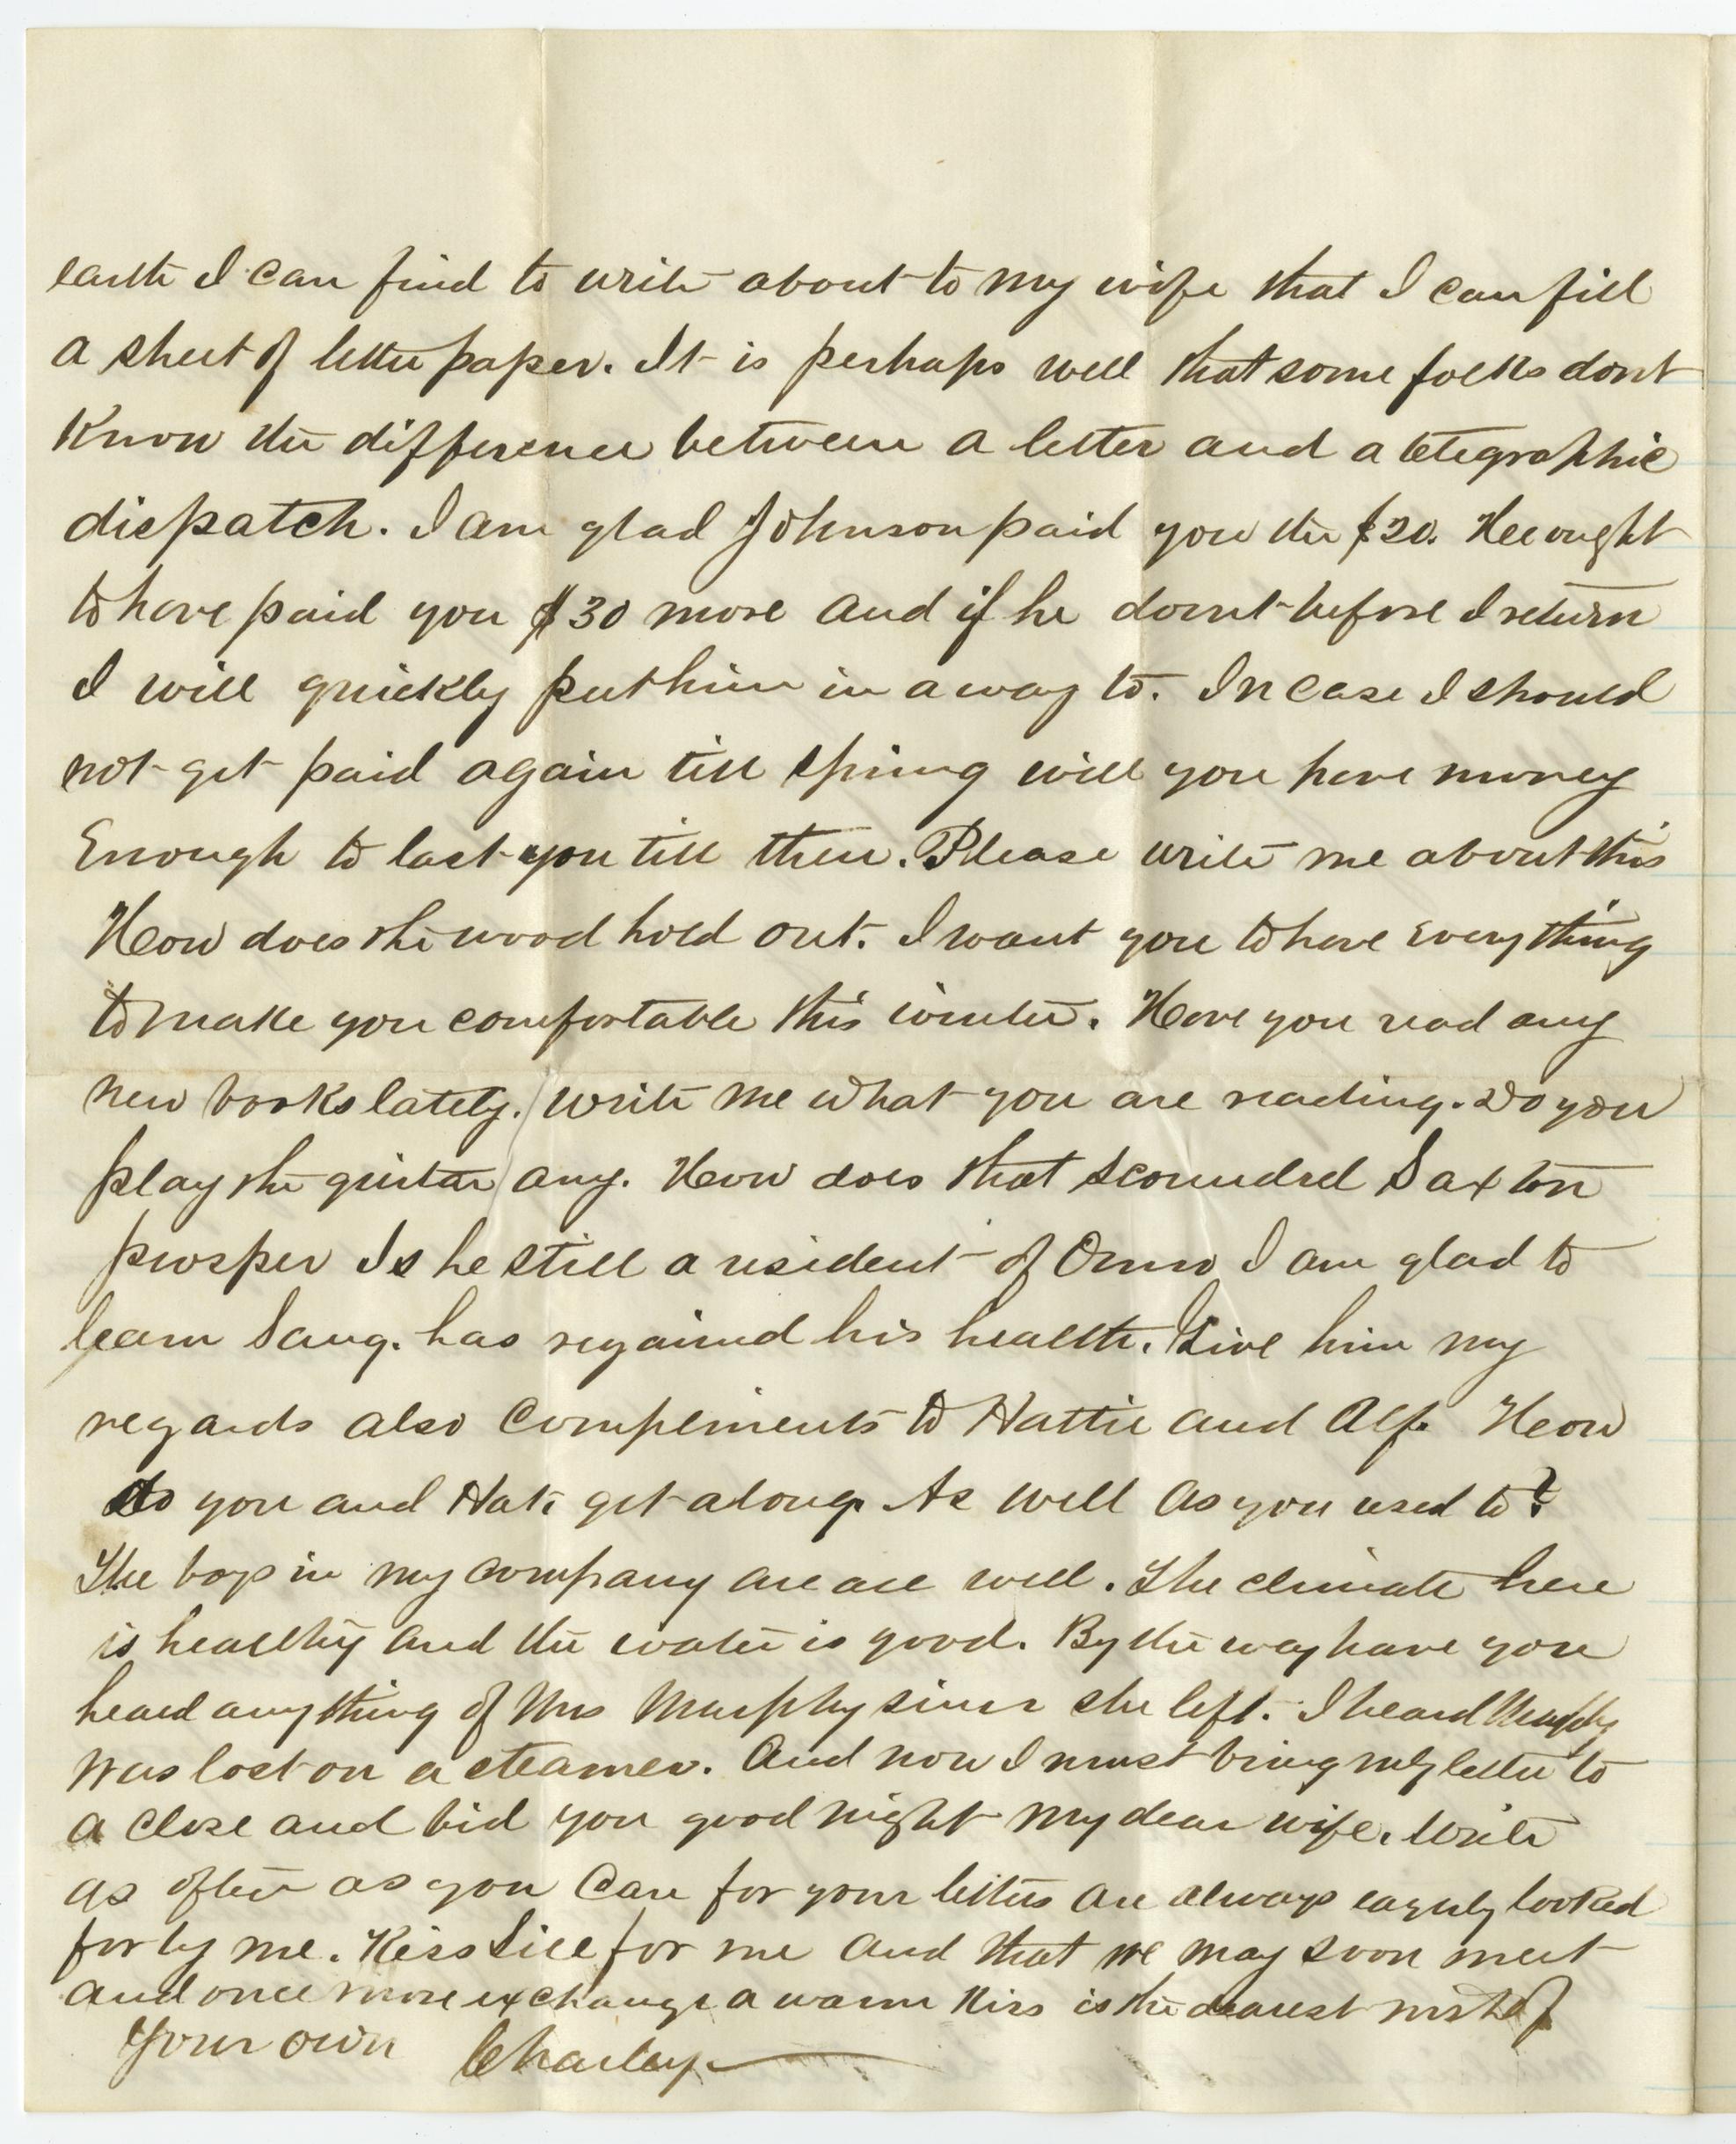 earth I can find to write about to my wife that I can fill
a sheet of letter paper. It is perhaps well that some folks dont
Know the difference between a letter and a telegraphic
dispatch. I am glad Johnson paid you the $20. He ought
to have paid you $30 more and if he dont before I return
I will quickly put him in a way to. In case I should
not get paid again till spring will you have money
Enough to last you till then. Please write me about this
How does the wood hold out. I want you to have everything
to make you comfortable this winter. Have you read any
new books lately. Write me what you are reading. Do you
play the guitar any. How does that scoundrel Saxton
prosper Is he still a resident of Onno I am glad to
learn Sang. has regained his health. Give him my
regards also compliments to Hattie and Alf. How
do you and Hat. get along. As well as you used to?
The boys in my company are all well. The climate here
is healthy and the water is good. By the way have you
heard anything of Mrs Murphy since she left. I heard Murphy
was lost on a steamer. And now I must bring my letter to
a close and bid you good night my dear wife. Write
as often as you can for your letters are always eagerly looked
for by me. Kiss Lill for me and that we may soon meet
and once more exchange a warm kiss is the dearest wish of
Your own Charley